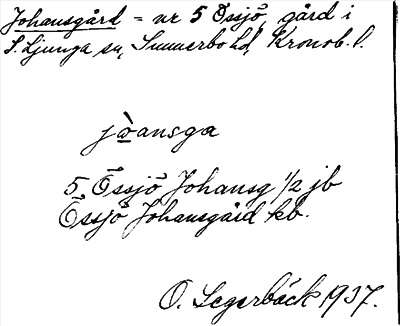 Johansgård = nr 5 Össjö, gård i
S. Ljunga sn, Sunnerbo hd, Kronob. l.
jòansga
5 Össjö Johansg 1/2 jb
Össjö Johansgård kb.
O. Segerbäck 1937.